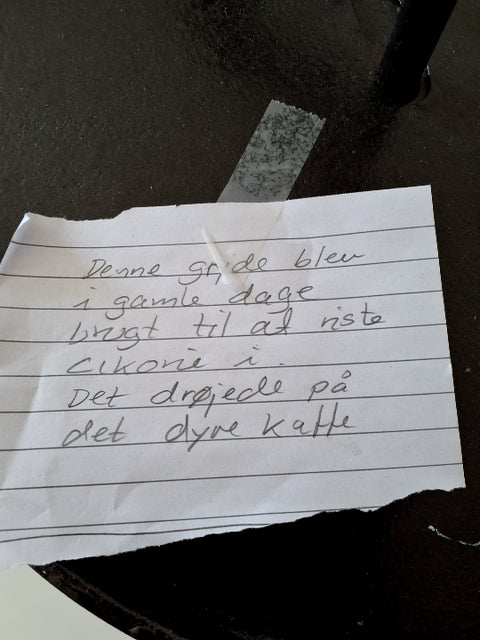 Denne gryde blev
i gamle dage
brugt til at riste
cikorie i.
Det drøjede på
det dyre kaffe